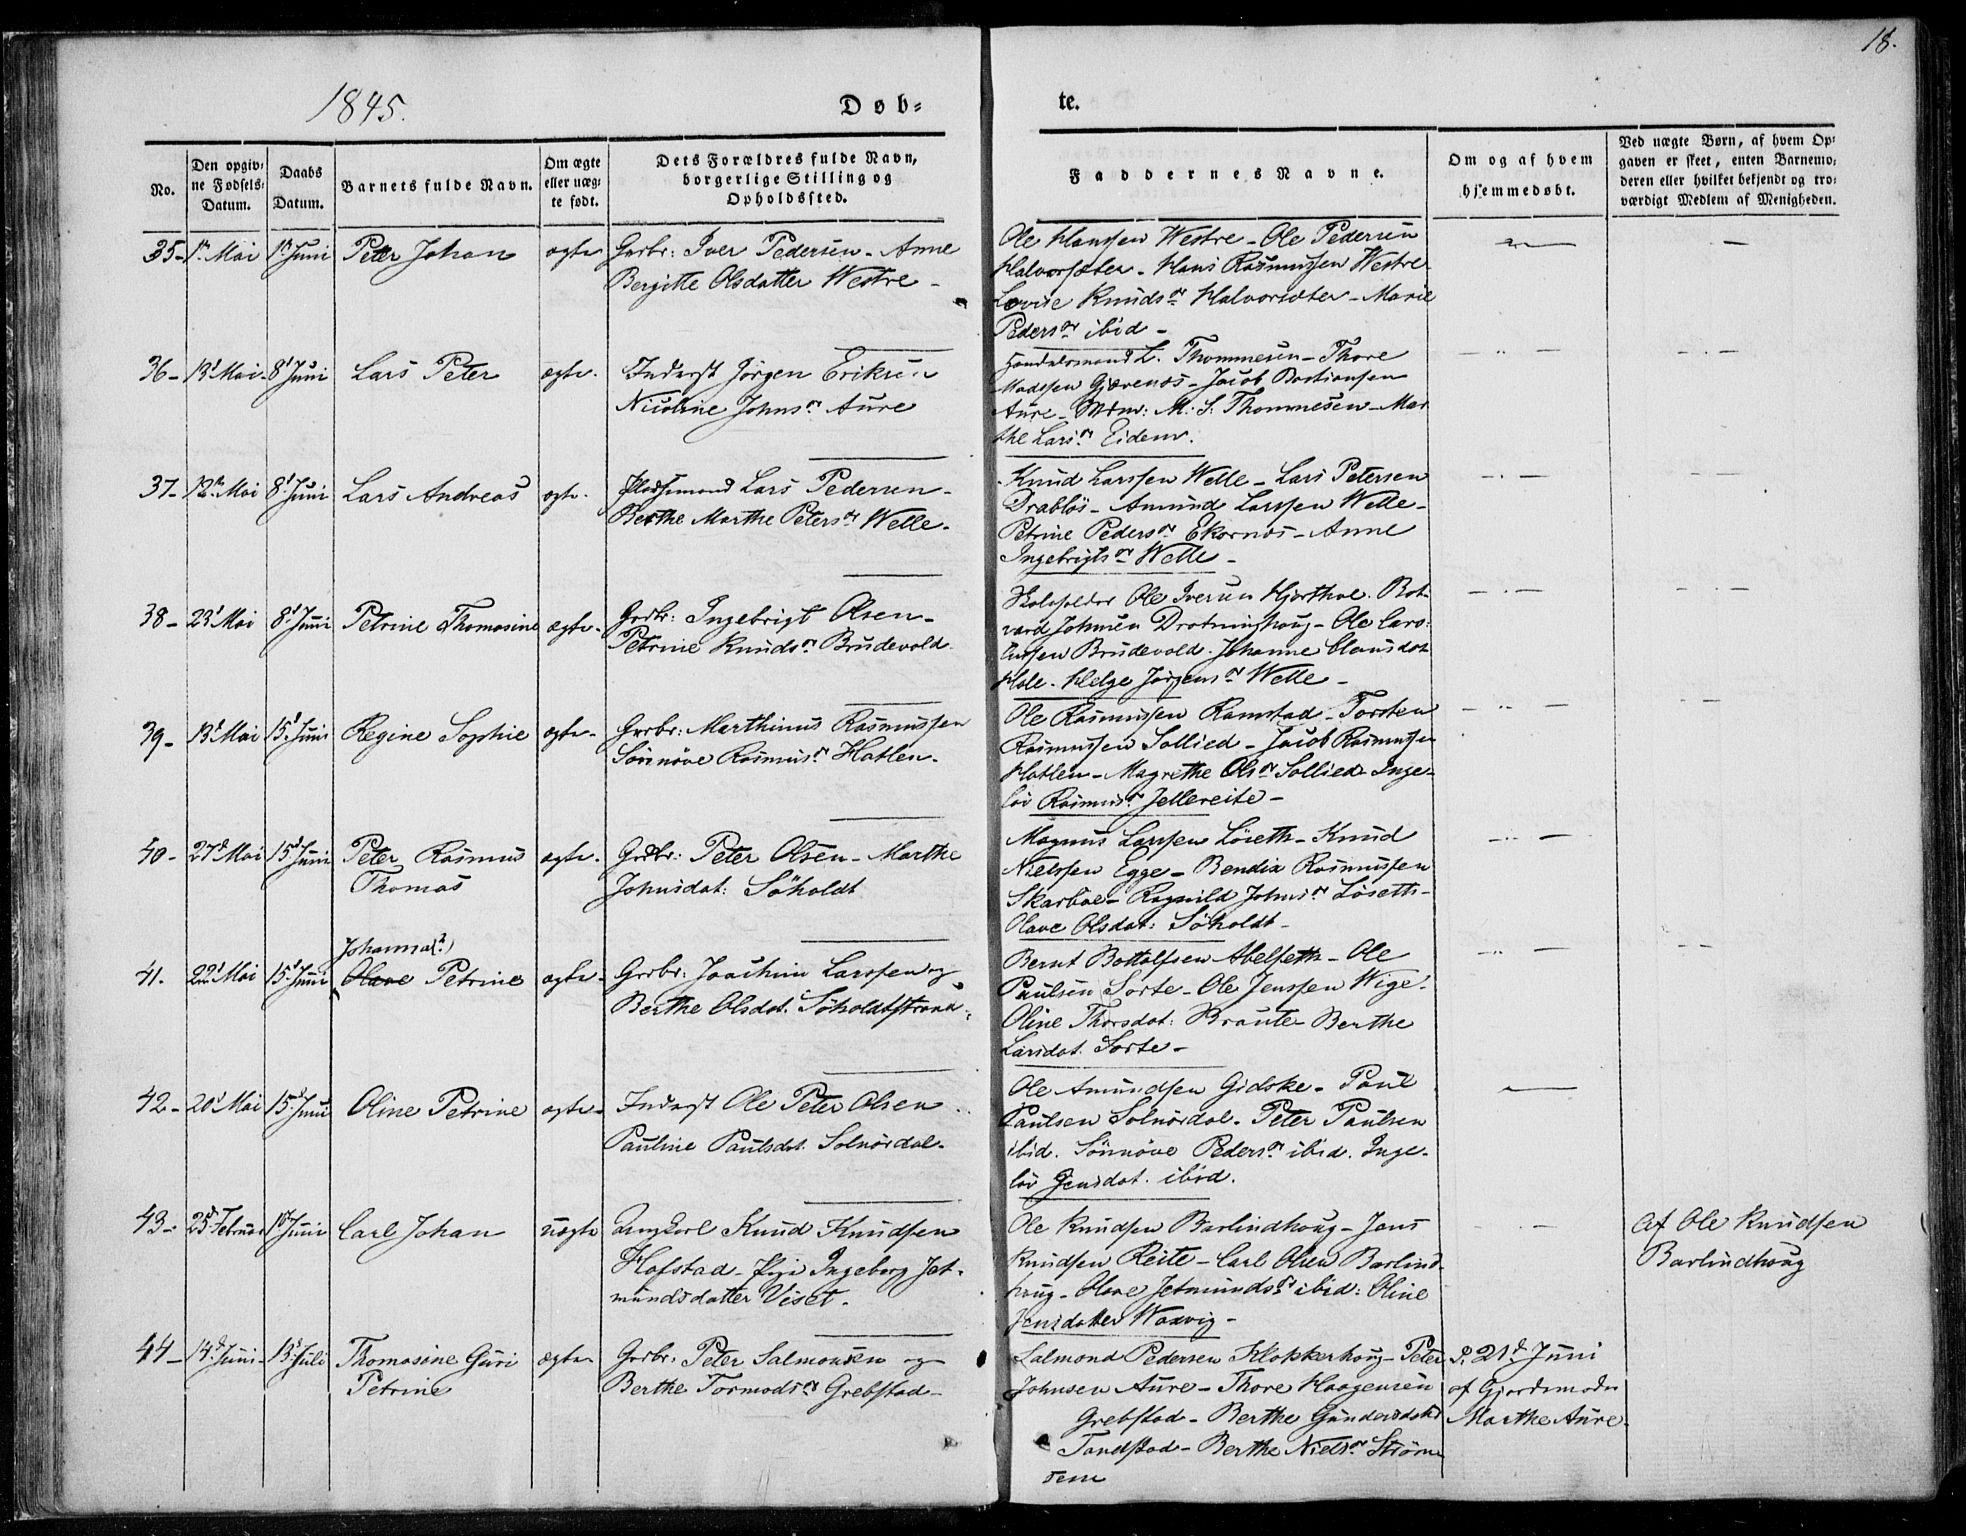 18.
1845.
Døb=
te.
No.
Den opgiv=
ne Fødsels=
Datum.
Daabs
Datum.
Barnets fulde Navn.
Om ægte
eller uæg=
te født.
Dets Forældres fulde Navn,
borgerlige Stilling og
Opholdssted.
Faddernes Navne.
Om og af hvem
hjemmedøbt.
Ved uægte Børn, af hvem Op=
gaven er skeet, enten Barnemo=
deren eller hvilket bekjendt og tro=
værdigt Medlem af Menigheden.
35- 1ste Mai 1ste Juni Peter Johan ægte Grdbr: Iver Pedersen - Anne
Bergitte Olsdatter Westre -
Ole Hanssen Westre - Ole Pedersen
Halvorsæter - Hans Rasmussen Westre
Lovise Knudsdr Halvorsæter - Marie
Pedersdr ibid -
36- 13d Mai 8d Juni Lars Peter ægte. Inderst Jörgen Eriksen
Nicoline Johnsdr Aure
Handelsmand L. Thommesen - Thore
Madssen Gjævenæs - Jacob Bastiansen
Aure - Mdm: M. S. Thommesen - Mar
the Larsdr Eidem.
37- 12te Mai 8d Juni Lars Andreas ægte. Pladsemand Lars Pedersen -
Berthe Marthe Petersdr Welle -
Knud Larssen Welle - Lars Petersen
Drablös - Amund Larssen Welle -
Petrine Pedersdr Ekornæs - Anne
Ingebrigtsdr Welle -
38- 23d Mai 8d Juni Petrine Thomasine ægte - Grdbr: Ingebrigt Olsen -
Petrine Knudsdr Brudevold.
Skoleholder Ole Iversen Hjorthol. Bot
vard Johnsen Drotninghoug - Ole Caro
lussen Brudevold. Johanne Clausdot
Hole. Helge Jörgensdr Welle -
39- 13d Mai 15d Juni Regine Sophie ægte - Grdbr: Marthinus Rasmussen
Sönnöve Rasmusdr Hatlen.
Ole Rasmussen Ramstad - Torsten
Rasmussen Sollied - Jacob Rasmussen
Hatlen - Magrethe Olsdr Sollied - Inge-
löv Rasmusdr Jellereite -
40- 27d Mai 15d Juni Peter Rasmus ægte. Grdbr: Peter Olsen - Marthe
Thomas Johnsdat: Söholdt
Magnus Larssen Löseth - Knud
Nielssen Egge - Bendix Rasmussen
Skarbøe - Ragnild Johnsdr Löseth -
Olave Olsdat: Söholdt -
Johanna(?)
41. 22d Mai 15d Juni Olave Petrine ægte - Grdbr: Joachim Larssen og
Berthe Olsdat. Söholdtstrand.
Bernt Bottolfsen Abelseth - Ole
Paulsen Sorte - Ole Jenssen Wige.
Oline Thorsdat: Braute - Berthe
Larsdat. Sorte -
42- 20d Mai 15d Juni Oline Petrine ægte - Inderst Ole Peter Olsen
Pauline Paulsdat. Solnördal -
Ole Amundsen Gidske - Paul
Paulsen Solnördal. Peter Paulsen
ibid. Sönnöve Pedersdr ibid. Inge-
löv Jensdat. ibid.
43- 25d Februar Juni Carl Johan uægte Ungkarl Knud Knudsen
Hofstad - Pige Ingeborg Jet-
mundsdatter Viset -
Ole Knudsen Barlindhoug - Jens
Knudsen Reite - Carl Olsen Barlind
houg - Olave Jetmundsdr ibid: Oline
Jensdatter Waxvig -
Af Ole Knudsen
Barlindhoug
44- 14d Juni 13d Juli Thomasine Guri ægte Grdbr: Peter Salmonsen og
Petrine Berthe Tormodsdr Grebstad -
Salmond Pedersen Klokkerhoug - Peter
Johnsen Aure - Thore Haagensen
Grebstad - Berthe Gundersdatr
Tandstad - Berthe Nielsdr Strömme
rem
D. 21d Juni
af Gjordemoder
Marthe Aure -